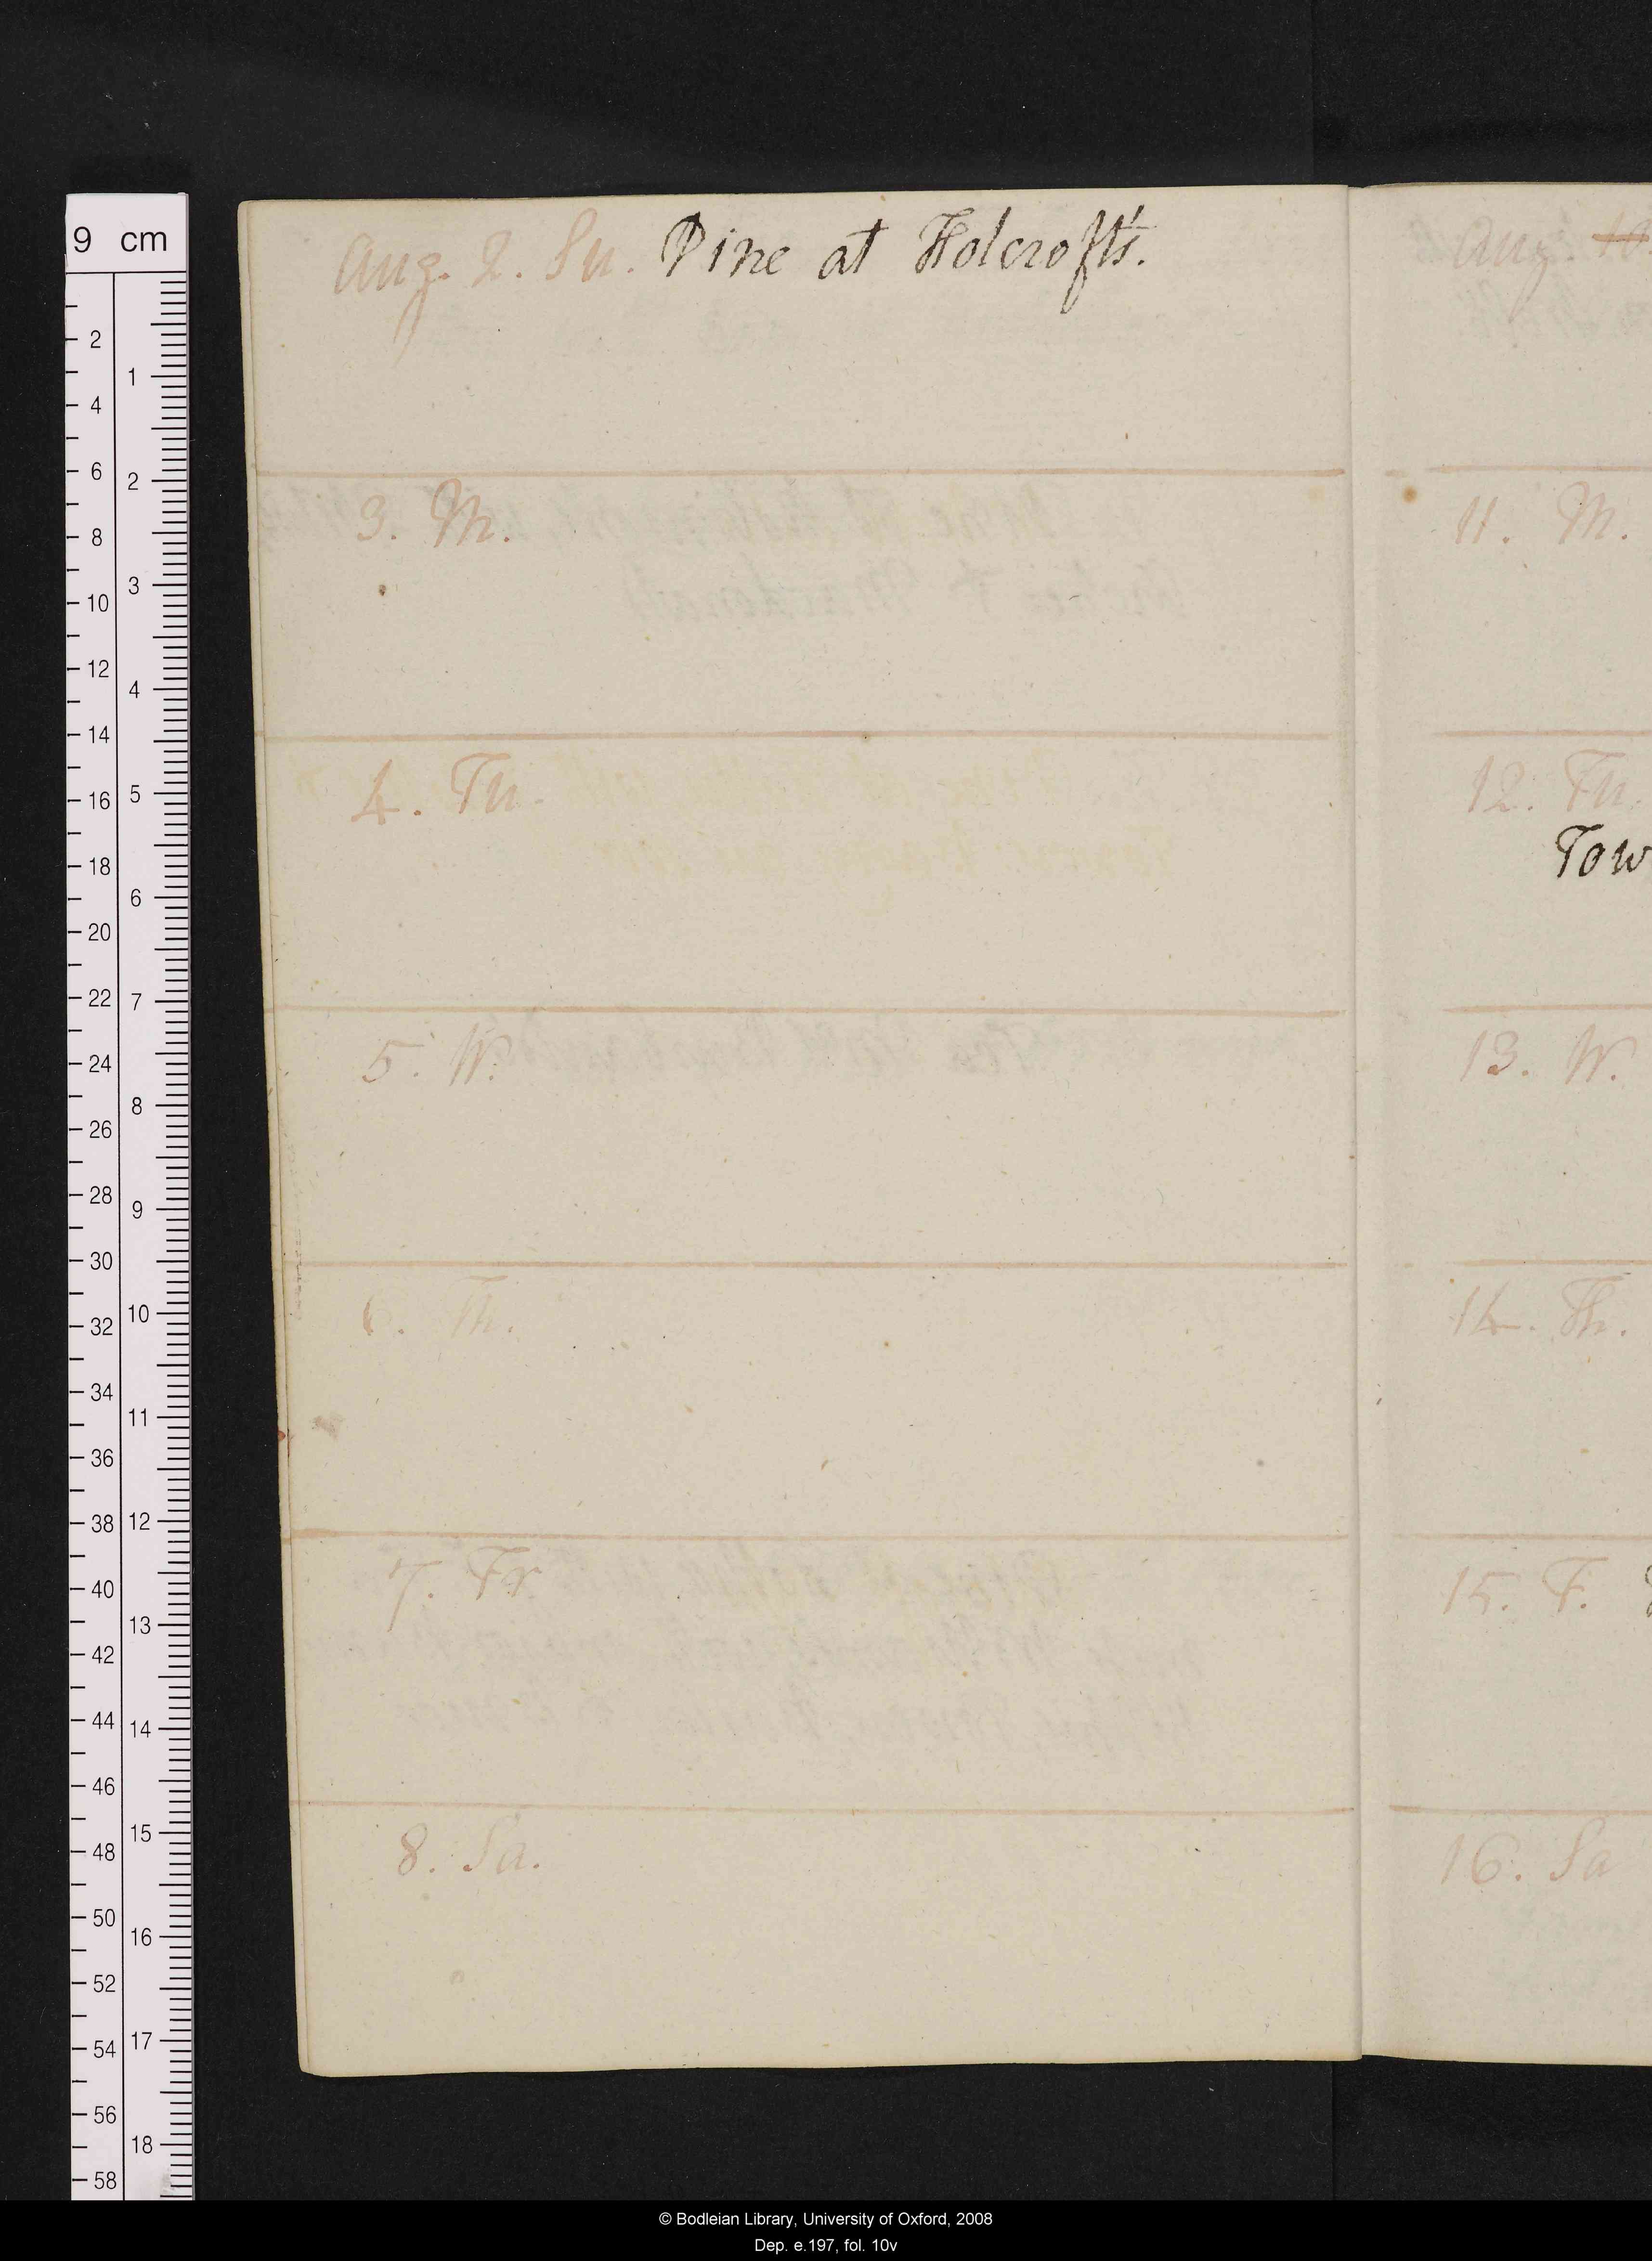 Aug. 2. Su. Dine at Holcroft's.
3. M.
4. Tu.
5. W.
6. Th.
7. Fr
8. Sa.
Aug. 10.
11. M.
12. Tu.
Tow
13. W.
14. Th.
15. F.
16. Sa
9 cm
2
4
6
8
10
12
14
16
18
20
22
24
26
28
30
32
34
36
38
40
42
44
46
48
50
52
54
56
58
1
2
3
4
5
6
7
8
9
10
11
12
13
14
15
16
17
18
© Bodleian Library, University of Oxford, 2008
Dep. e.197, fol. 10v